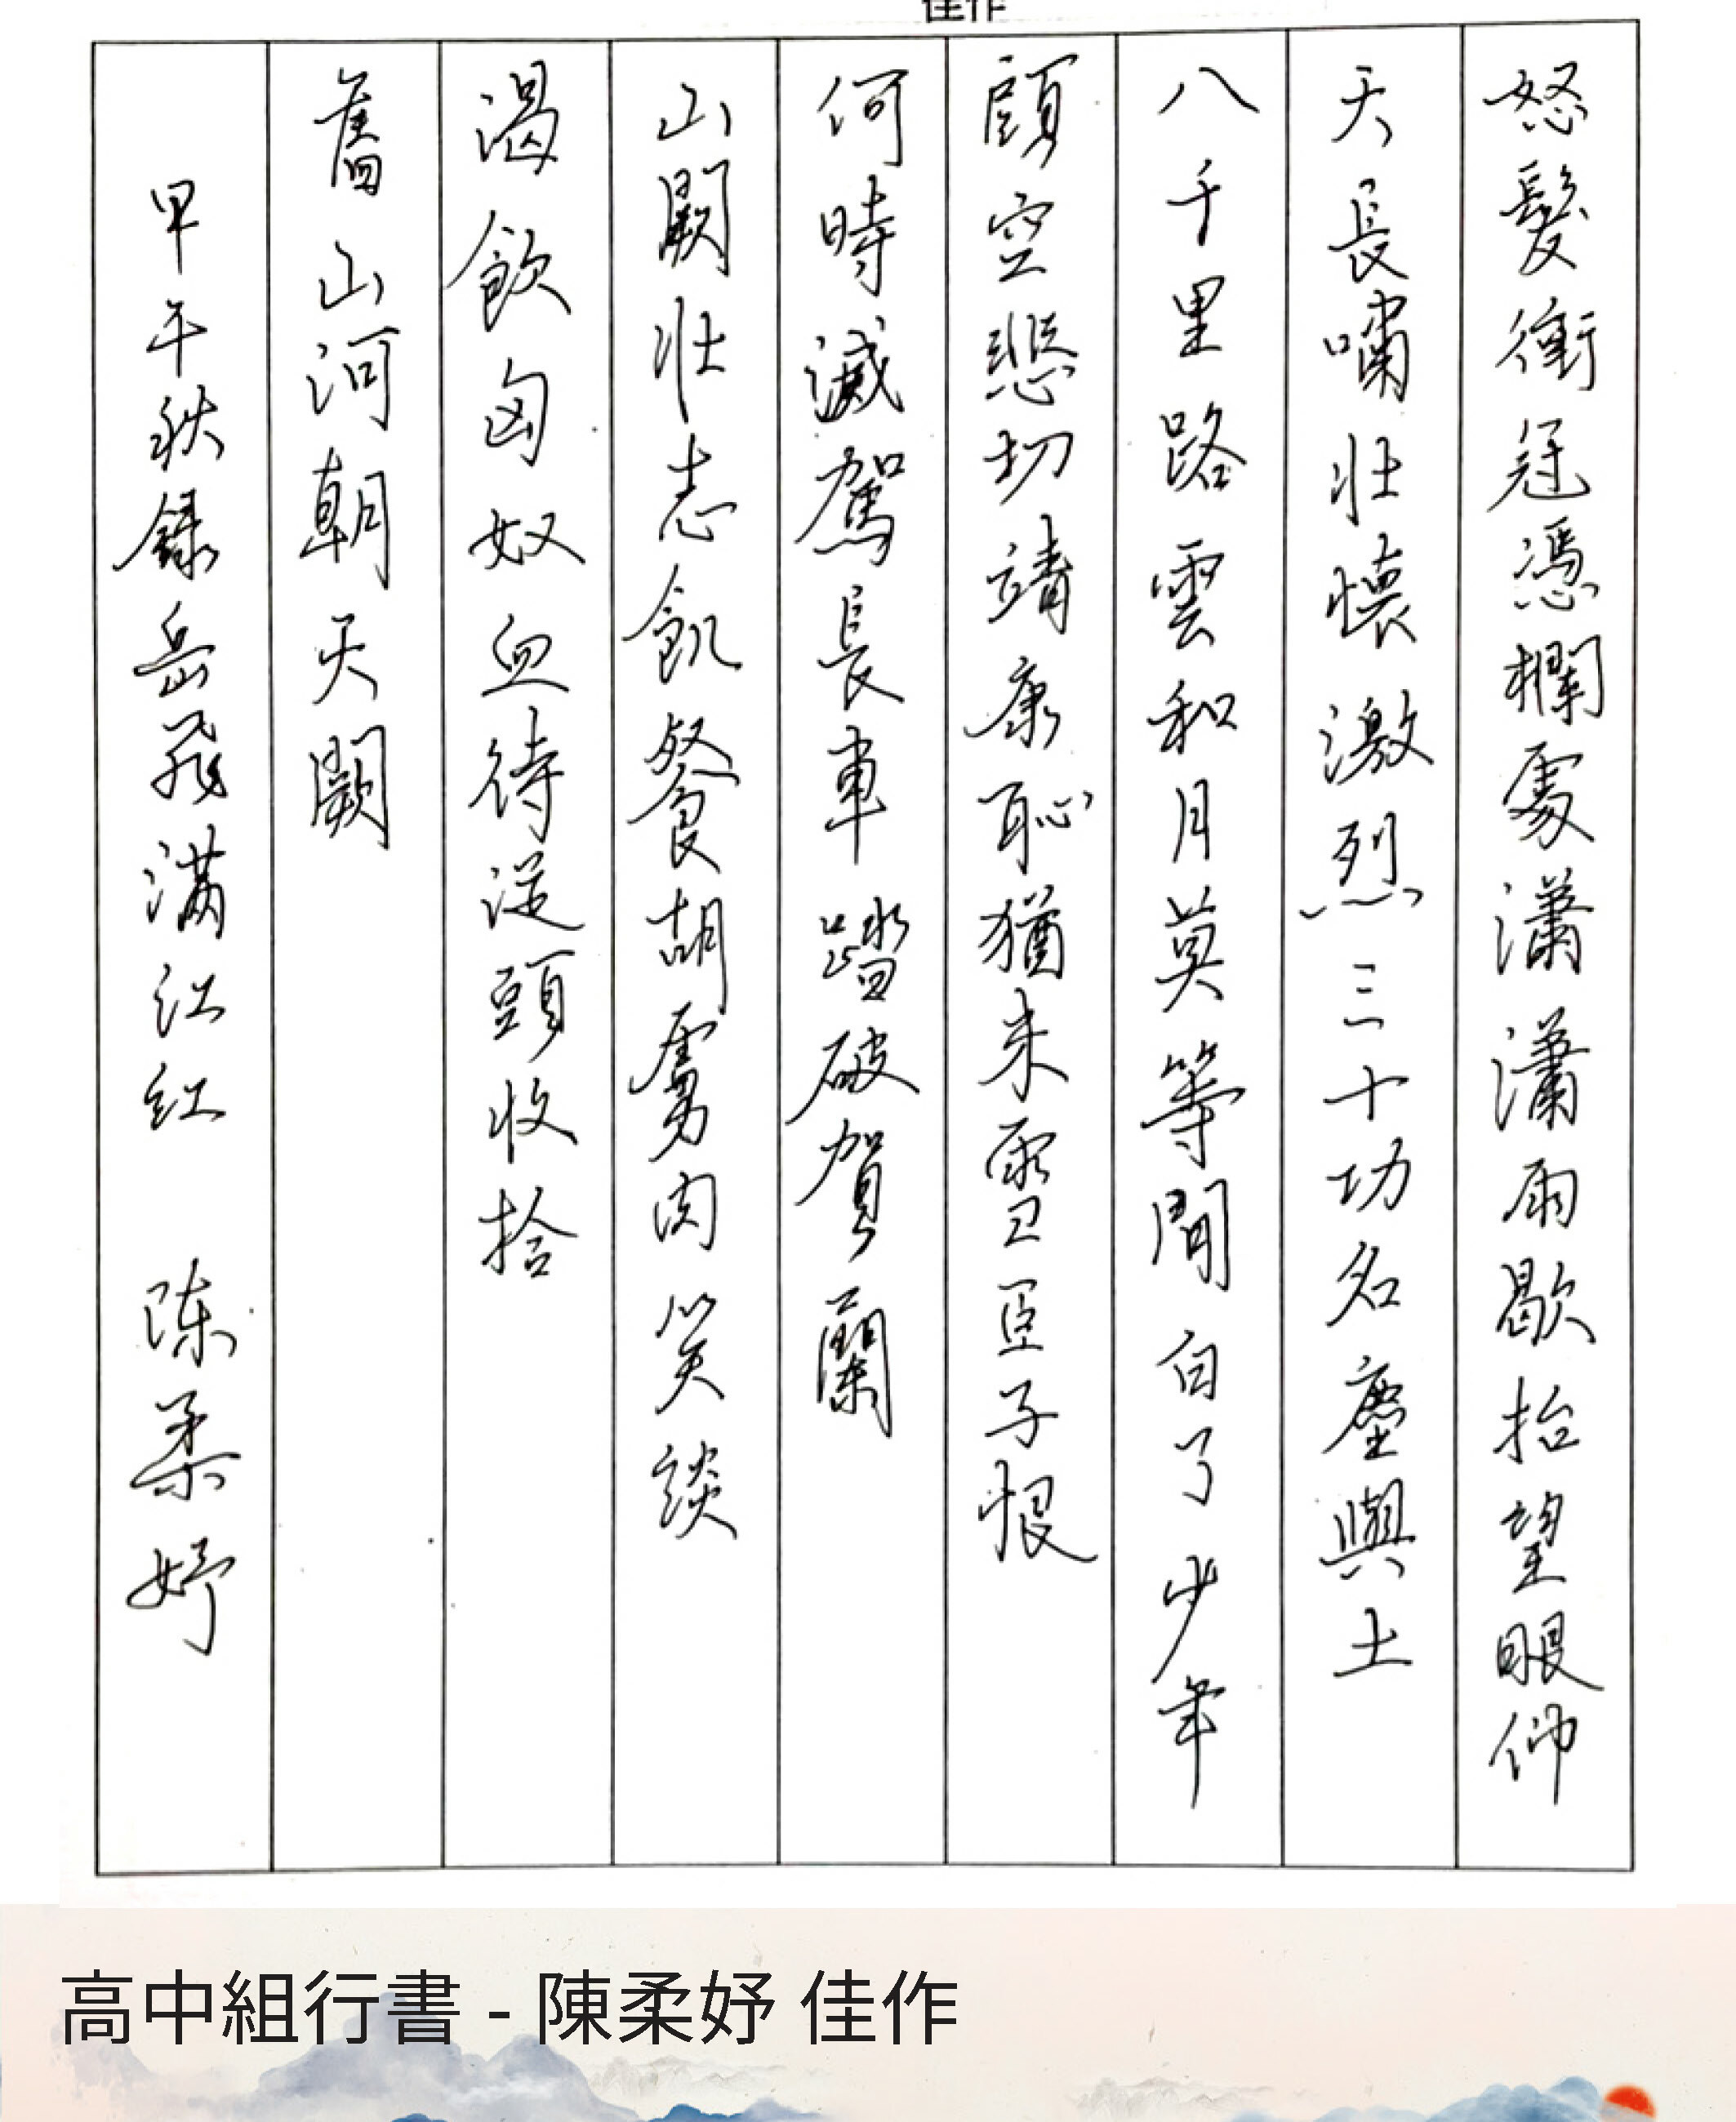 佳作
怒髮衝冠憑欄處瀟瀟雨歇抬望眼仰
天長嘯壯懷激烈三十功名塵與土
八千里路雲和月莫等閒白了少年
頭空悲切靖康恥猶未雪臣子恨
何時滅駕長車踏破賀蘭
山闕壯志飢餐胡虜肉笑談
渴飲匈奴血待從頭收拾
舊山河朝天闕
甲午秋錄岳飛滿江紅 陳柔妤
高中組行書 - 陳柔妤 佳作